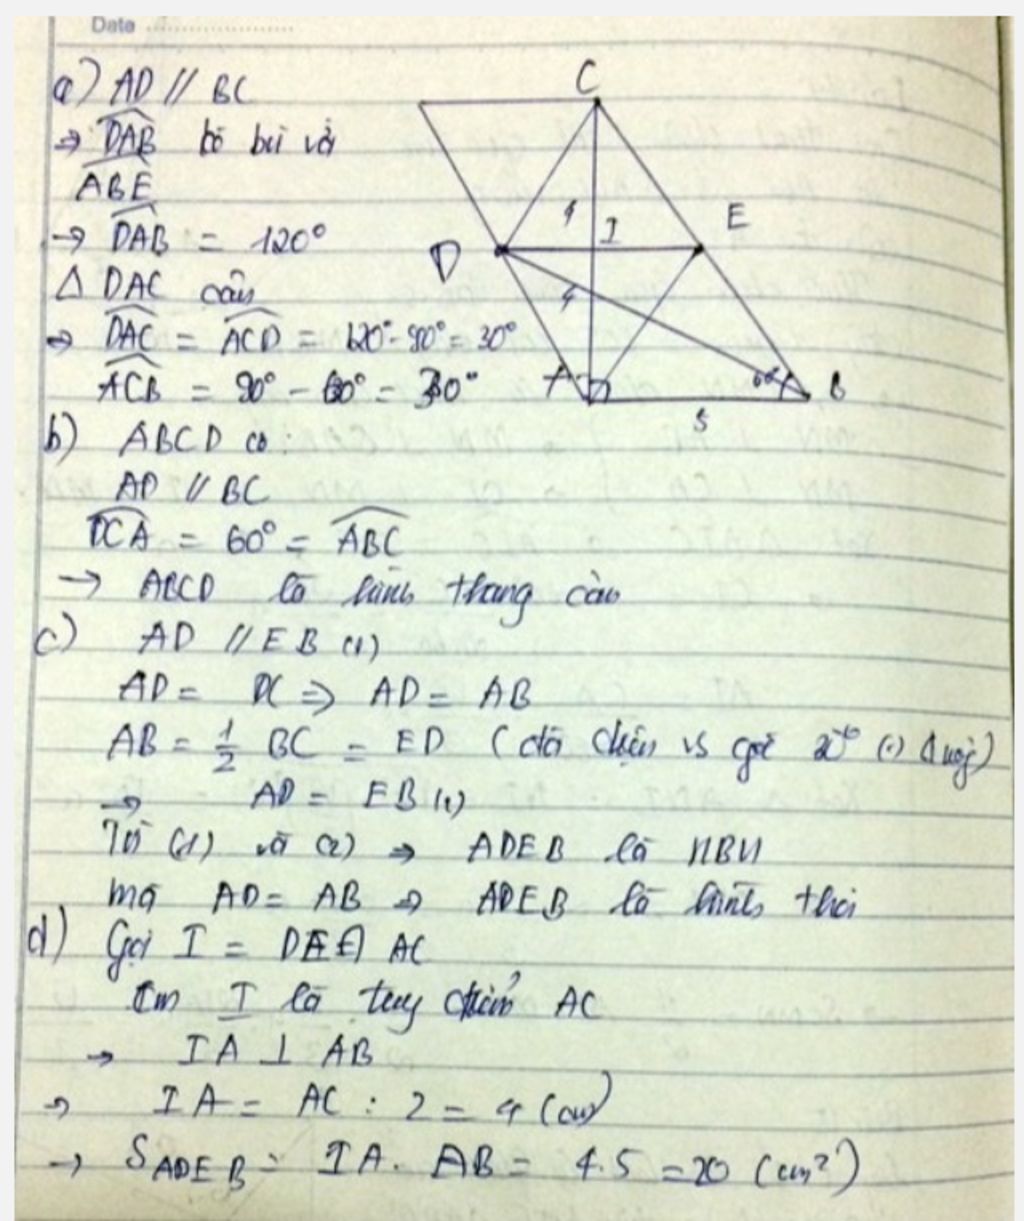 Date
a) AD // BC
⇒ DAB kề bù với
ABE
→ DAB = 120°
Δ DAC cân
⇒ DAC = ACD = 120° - 90° = 30°
ACB = 90° - 60° = 30°
b) ABCD có
AD // BC
DCA = 60° = ABC
→ ABCD là hình thang cân
c) AD // EB (1)
AD = DC ⇒ AD = AB
AB = 1/2 BC = ED (đối diện vs góc
→ AD = EB
Từ (1) và (2) ⇒ ADEB là HBH
mà AD = AB ⇒ ADEB là hình thoi
d) Gọi I = AC
Cm I là trung điểm AC
→ IA ⊥ AB
→ IA = AC : 2 = 4 (cm)
→ S ADEB = IA. AB = 4.5 = 20 (cm²)
C
E
4
I
D
4
A
60°
B
5